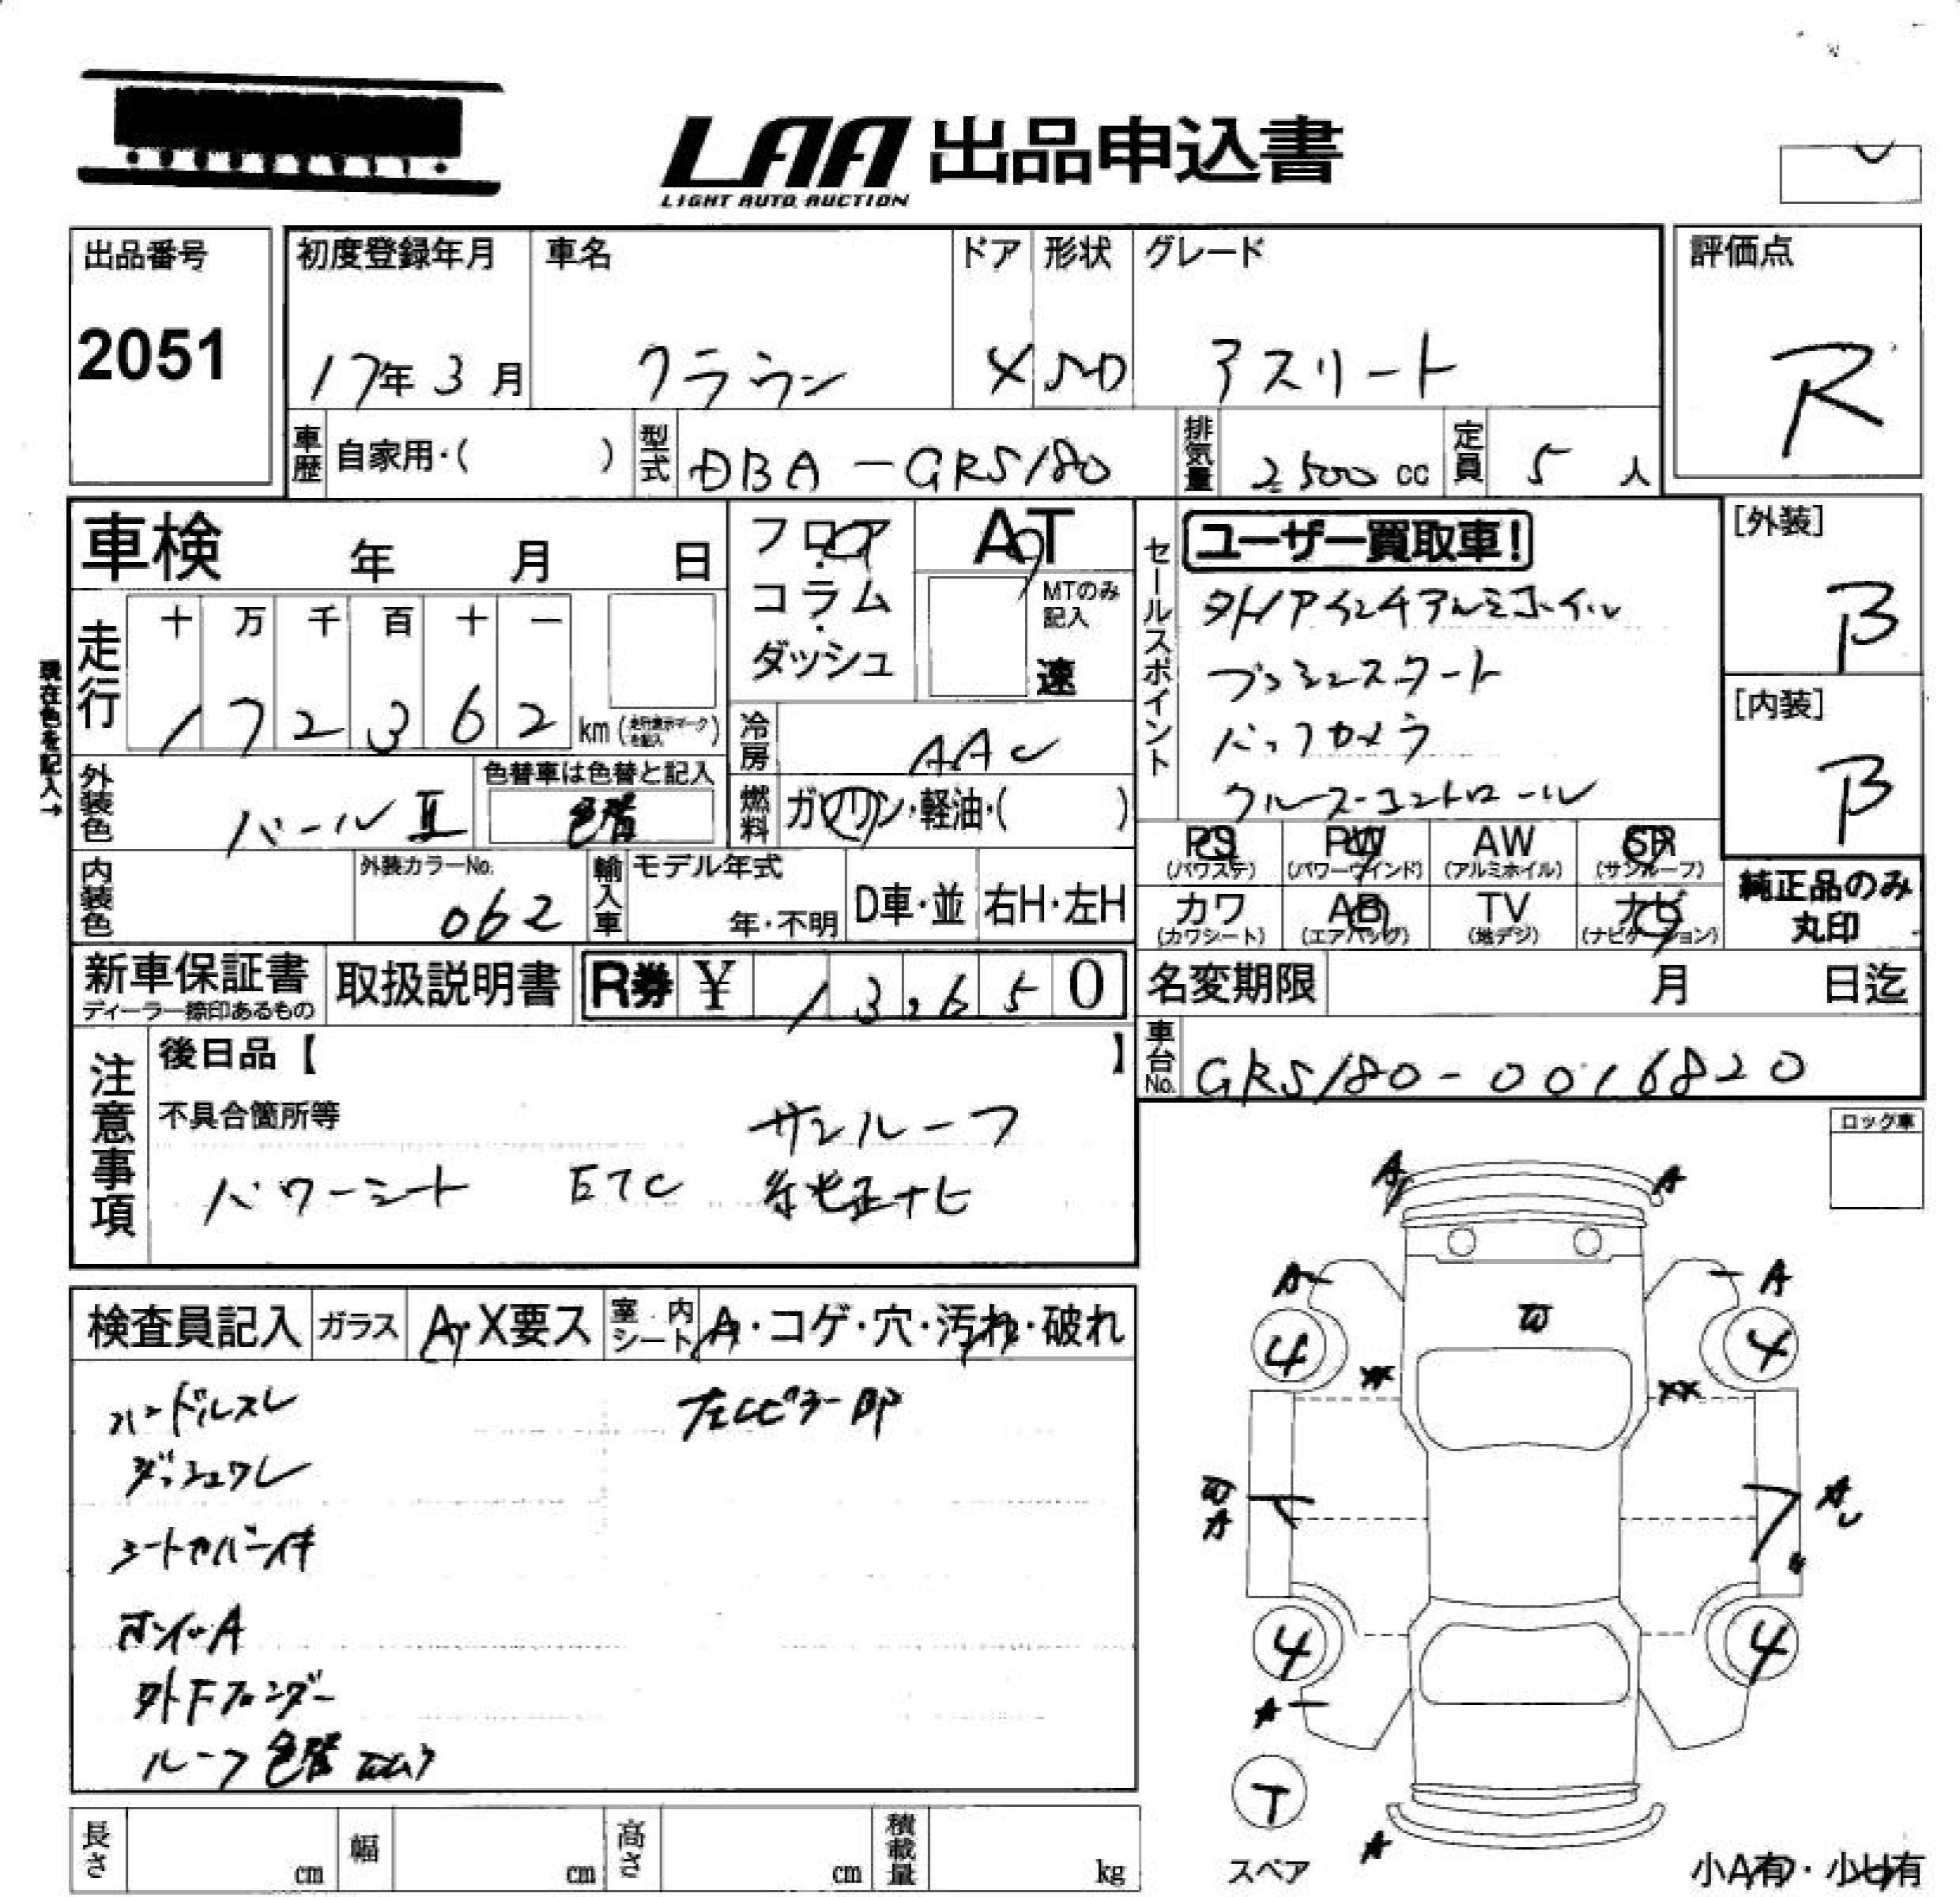 LAA 出品申込書
LIGHT AUTO AUCTION
出品番号
2051
初度登録年月
17年 3月
車名
クラウン
ドア
4
形状
SD
グレード
アスリート
評価点
R
車歴
自家用・( )
型式
DBA-GRS180
排気量
2500 cc
定員
5 人
車検 年 月 日
フロア・コラム・ダッシュ
AT
MTのみ記入
速
セールスポイント
ユーザー買取車!
18インチアルミホイル
プッシュスタート
バックカメラ
クルーズコントロール
[外装]
B
[内装]
B
現在色を記入→
走行
十 万 千 百 十 一
1 7 2 3 6 2 km
冷房
AAC
外装色
パールⅡ
色替車は色替と記入
色替
燃料
ガソリン・軽油・( )
PS (パワステ)
PW (パワーウインド)
AW (アルミホイル)
SR (サンルーフ)
カワ (カワシート)
AB (エアバッグ)
TV (地デジ)
ナビ (ナビゲーション)
純正品のみ
丸印
内装色
外装カラーNo.
062
輸入車
モデル年式
年・不明
D車・並
右H・左H
新車保証書
ディーラー捺印あるもの
取扱説明書
R券 ¥ 13,650
名変期限 月 日迄
車台No.
GRS180-0016820
注意事項
後日品【 】
不具合箇所等
サンルーフ
パワーシート ETC 純正ナビ
ロング車
検査員記入
ガラス
A・X要ス
室内シート
A・コゲ・穴・汚れ・破れ
ハンドルスレ
左Cピラー
ダッシュワレ
シートカバー付
外Fフェンダー
ルーフ色替
A A
A A
W
4 4
XX XX
W
A
A
4 4
A
T
スペア
A
小A有・小U有
長さ cm
幅 cm
高さ cm
積載量 kg